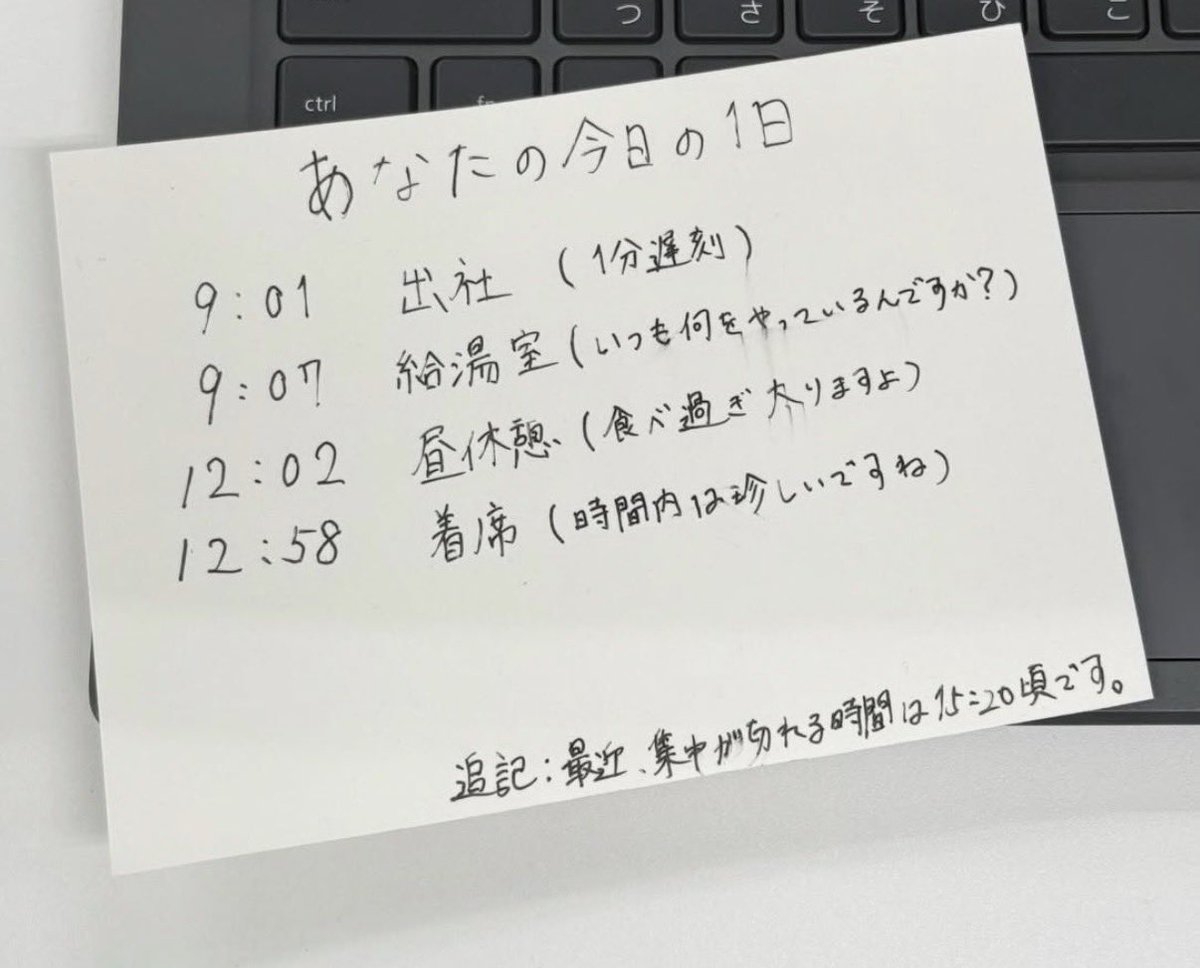 つ さ そ ひ こ
ctrl
あなたの今日の1日
9:01 出社 (1分遅刻)
9:07 給湯室(いつも何をやっているんですか?)
12:02 昼休憩(食べ過ぎ太りますよ)
12:58 着席(時間内は珍しいですね)
追記:最近、集中が切れる時間は15:20頃です。